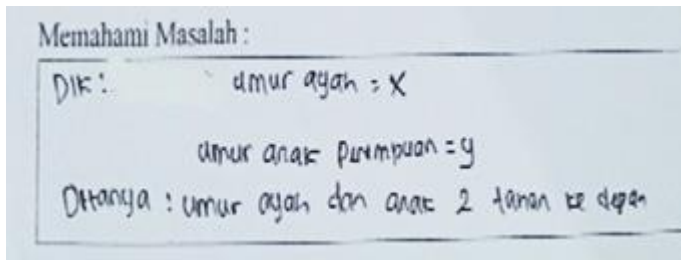 Memahami Masalah :
Dik : umur ayah = x
umur anak perempuan = y
Ditanya : umur ayah dan anak 2 tahun ke depan